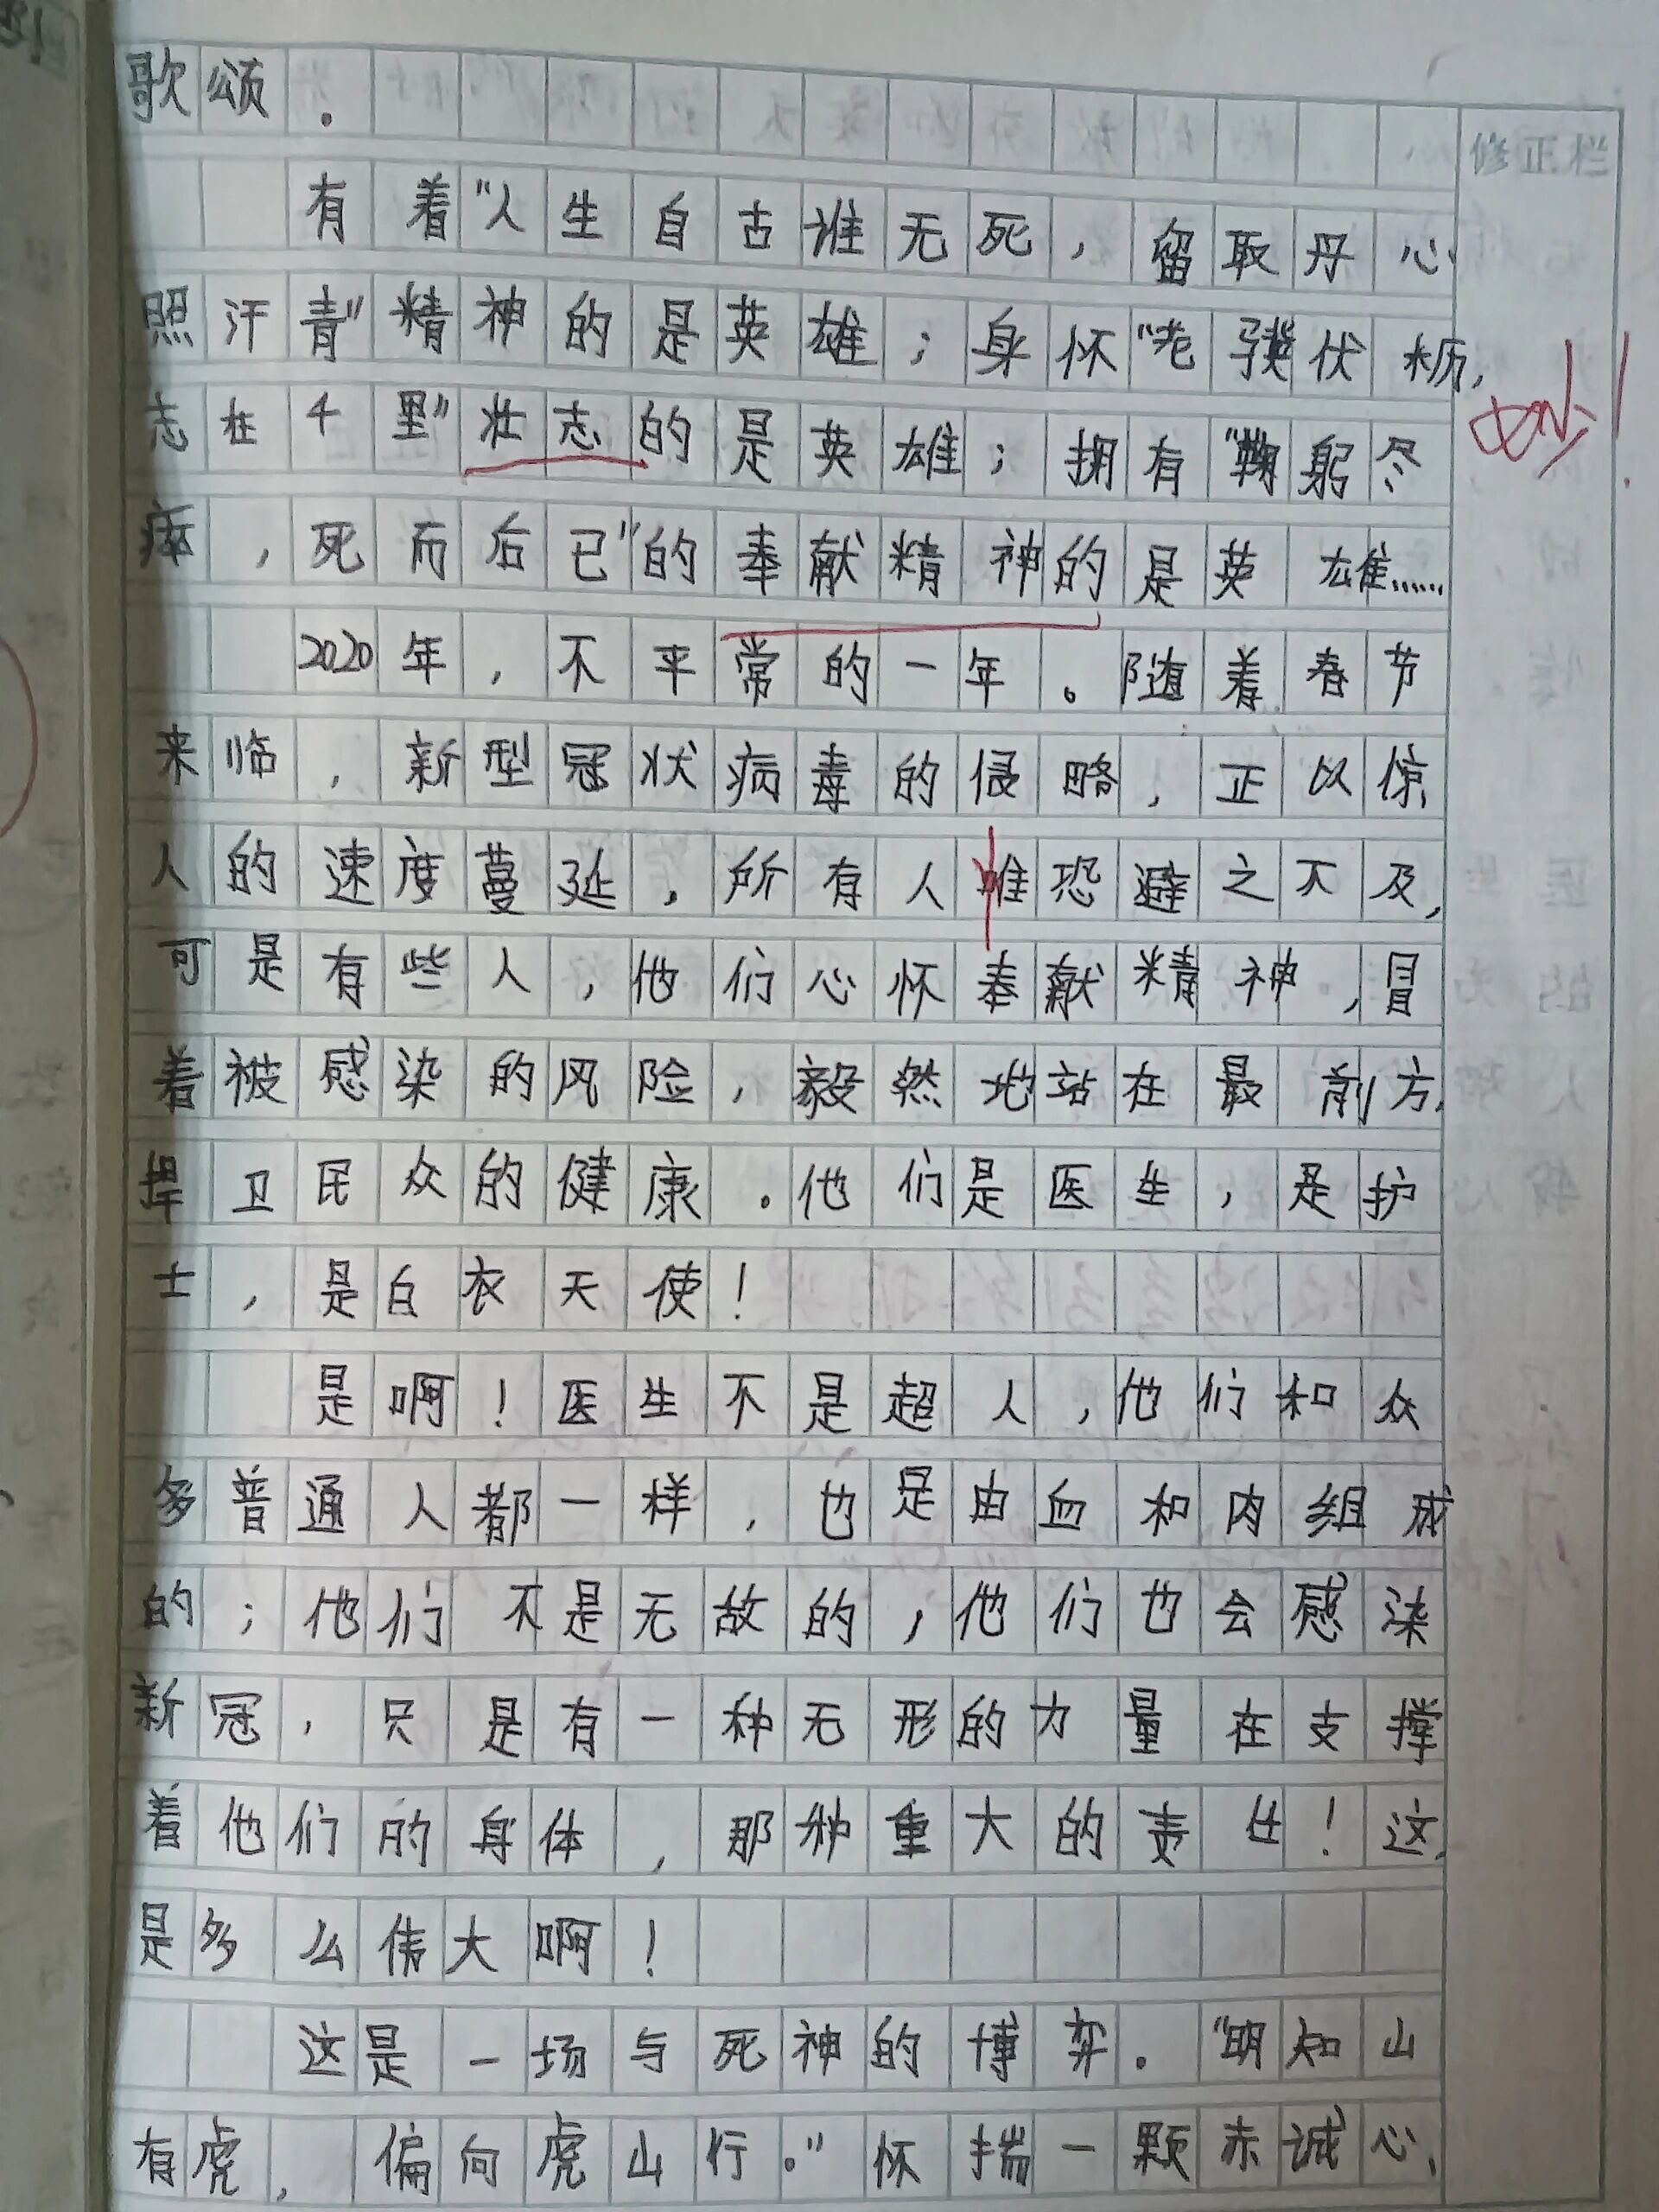 歌颂。
修正栏
有着"人生自古谁无死，留取丹心
照汗青"精神的是英雄；身怀"老骥伏枥，
志在千里"壮志的是英雄；拥有"鞠躬尽
妙！
瘁，死而后已"的奉献精神的是英雄……
2020年，不平常的一年。随着春节
来临，新型冠状病毒的侵略，正以惊
人的速度蔓延，所有人唯恐避之不及，
可是有些人，他们心怀奉献精神，冒
着被感染的风险，毅然地站在最前方，
捍卫民众的健康。他们是医生，是护
士，是白衣天使！
是啊！医生不是超人，他们和众
多普通人都一样，也是由血和肉组成
的；他们不是无故的，他们也会感染
新冠，只是有一种无形的力量在支撑
着他们的身体，那种重大的责任！这
是多么伟大啊！
这是一场与死神的博弈。"明知山
有虎，偏向虎山行。"怀揣一颗赤诚心，